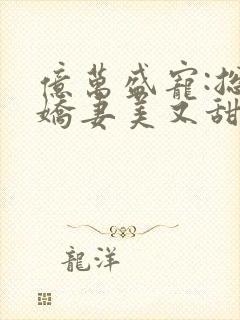 億萬盛寵:總
嬌妻美又甜
龍洋